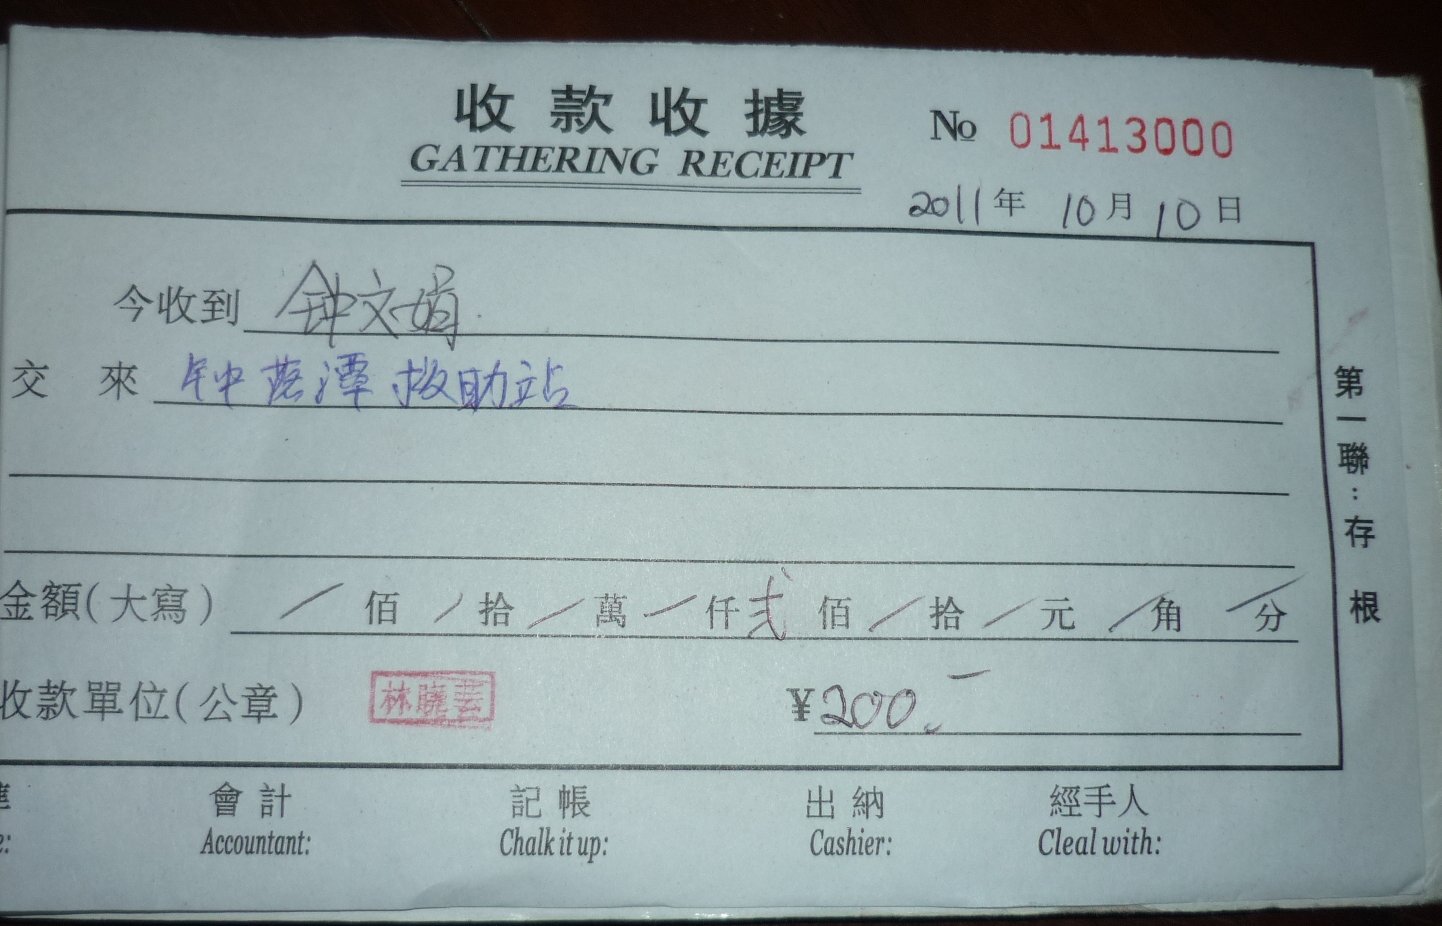 收款收據
GATHERING RECEIPT
№ 01413000
2011年 10月 10日
今收到 钟文娟
交來 钟落潭救助站
金額(大寫) / 佰 / 拾 / 萬 / 仟 弍 佰 / 拾 / 元 / 角 / 分
收款單位(公章) 林曉芸 ¥200.-
會計 記帳 出納 經手人
Accountant: Chalk it up: Cashier: Cleal with:
第一聯:存根